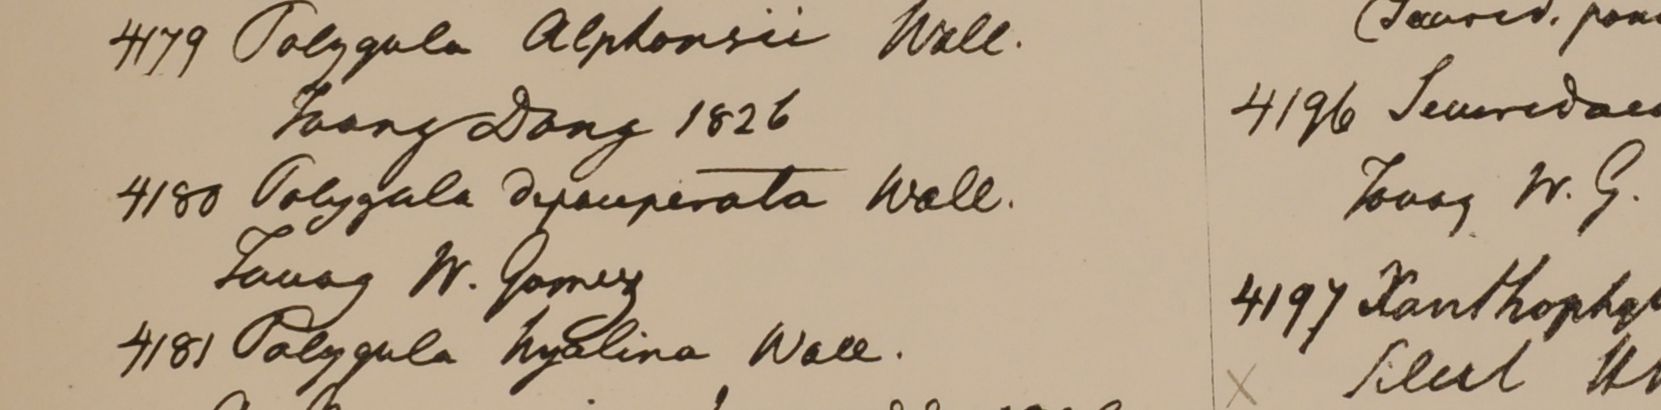 4179 Polygula Alphonsii Wall.
Toong Dong 1826
4180 Polygula depauperata Wall.
Tavoy W. Gomez
4181 Polygula hyalina Wall.
4196
Tavoy W. G.
4197 Xanthophyl
X Silhet